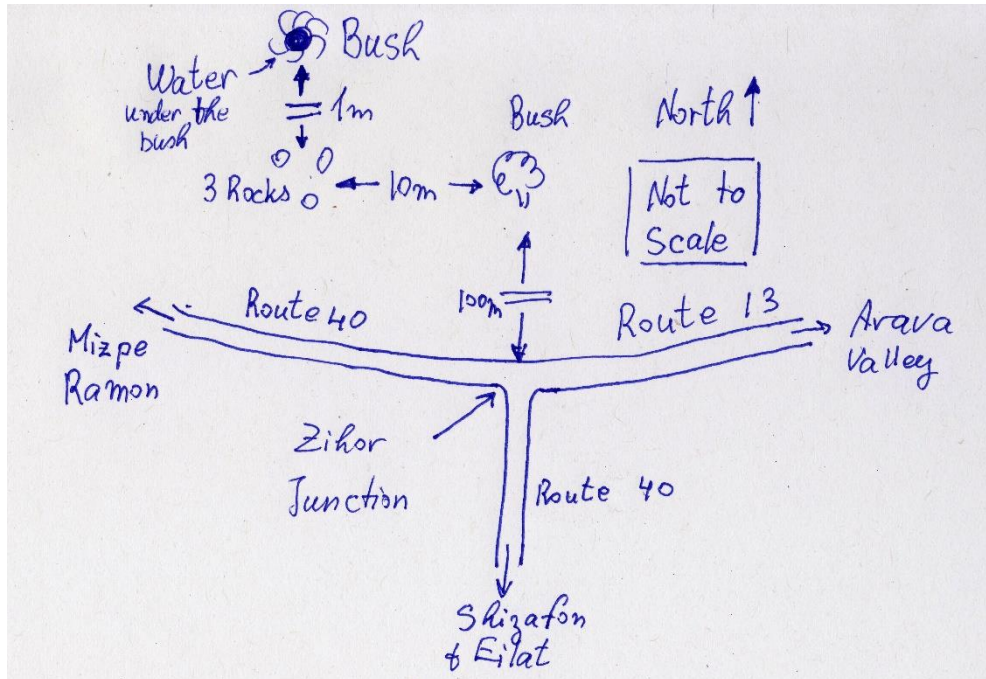 Bush
Water
under the
bush
1m
Bush
North
3 Rocks
10m
Not to
Scale
100m
Route 40
Route 13
Mizpe
Ramon
Arava
Valley
Zihor
Junction
Route 40
Shizafon
& Eilat